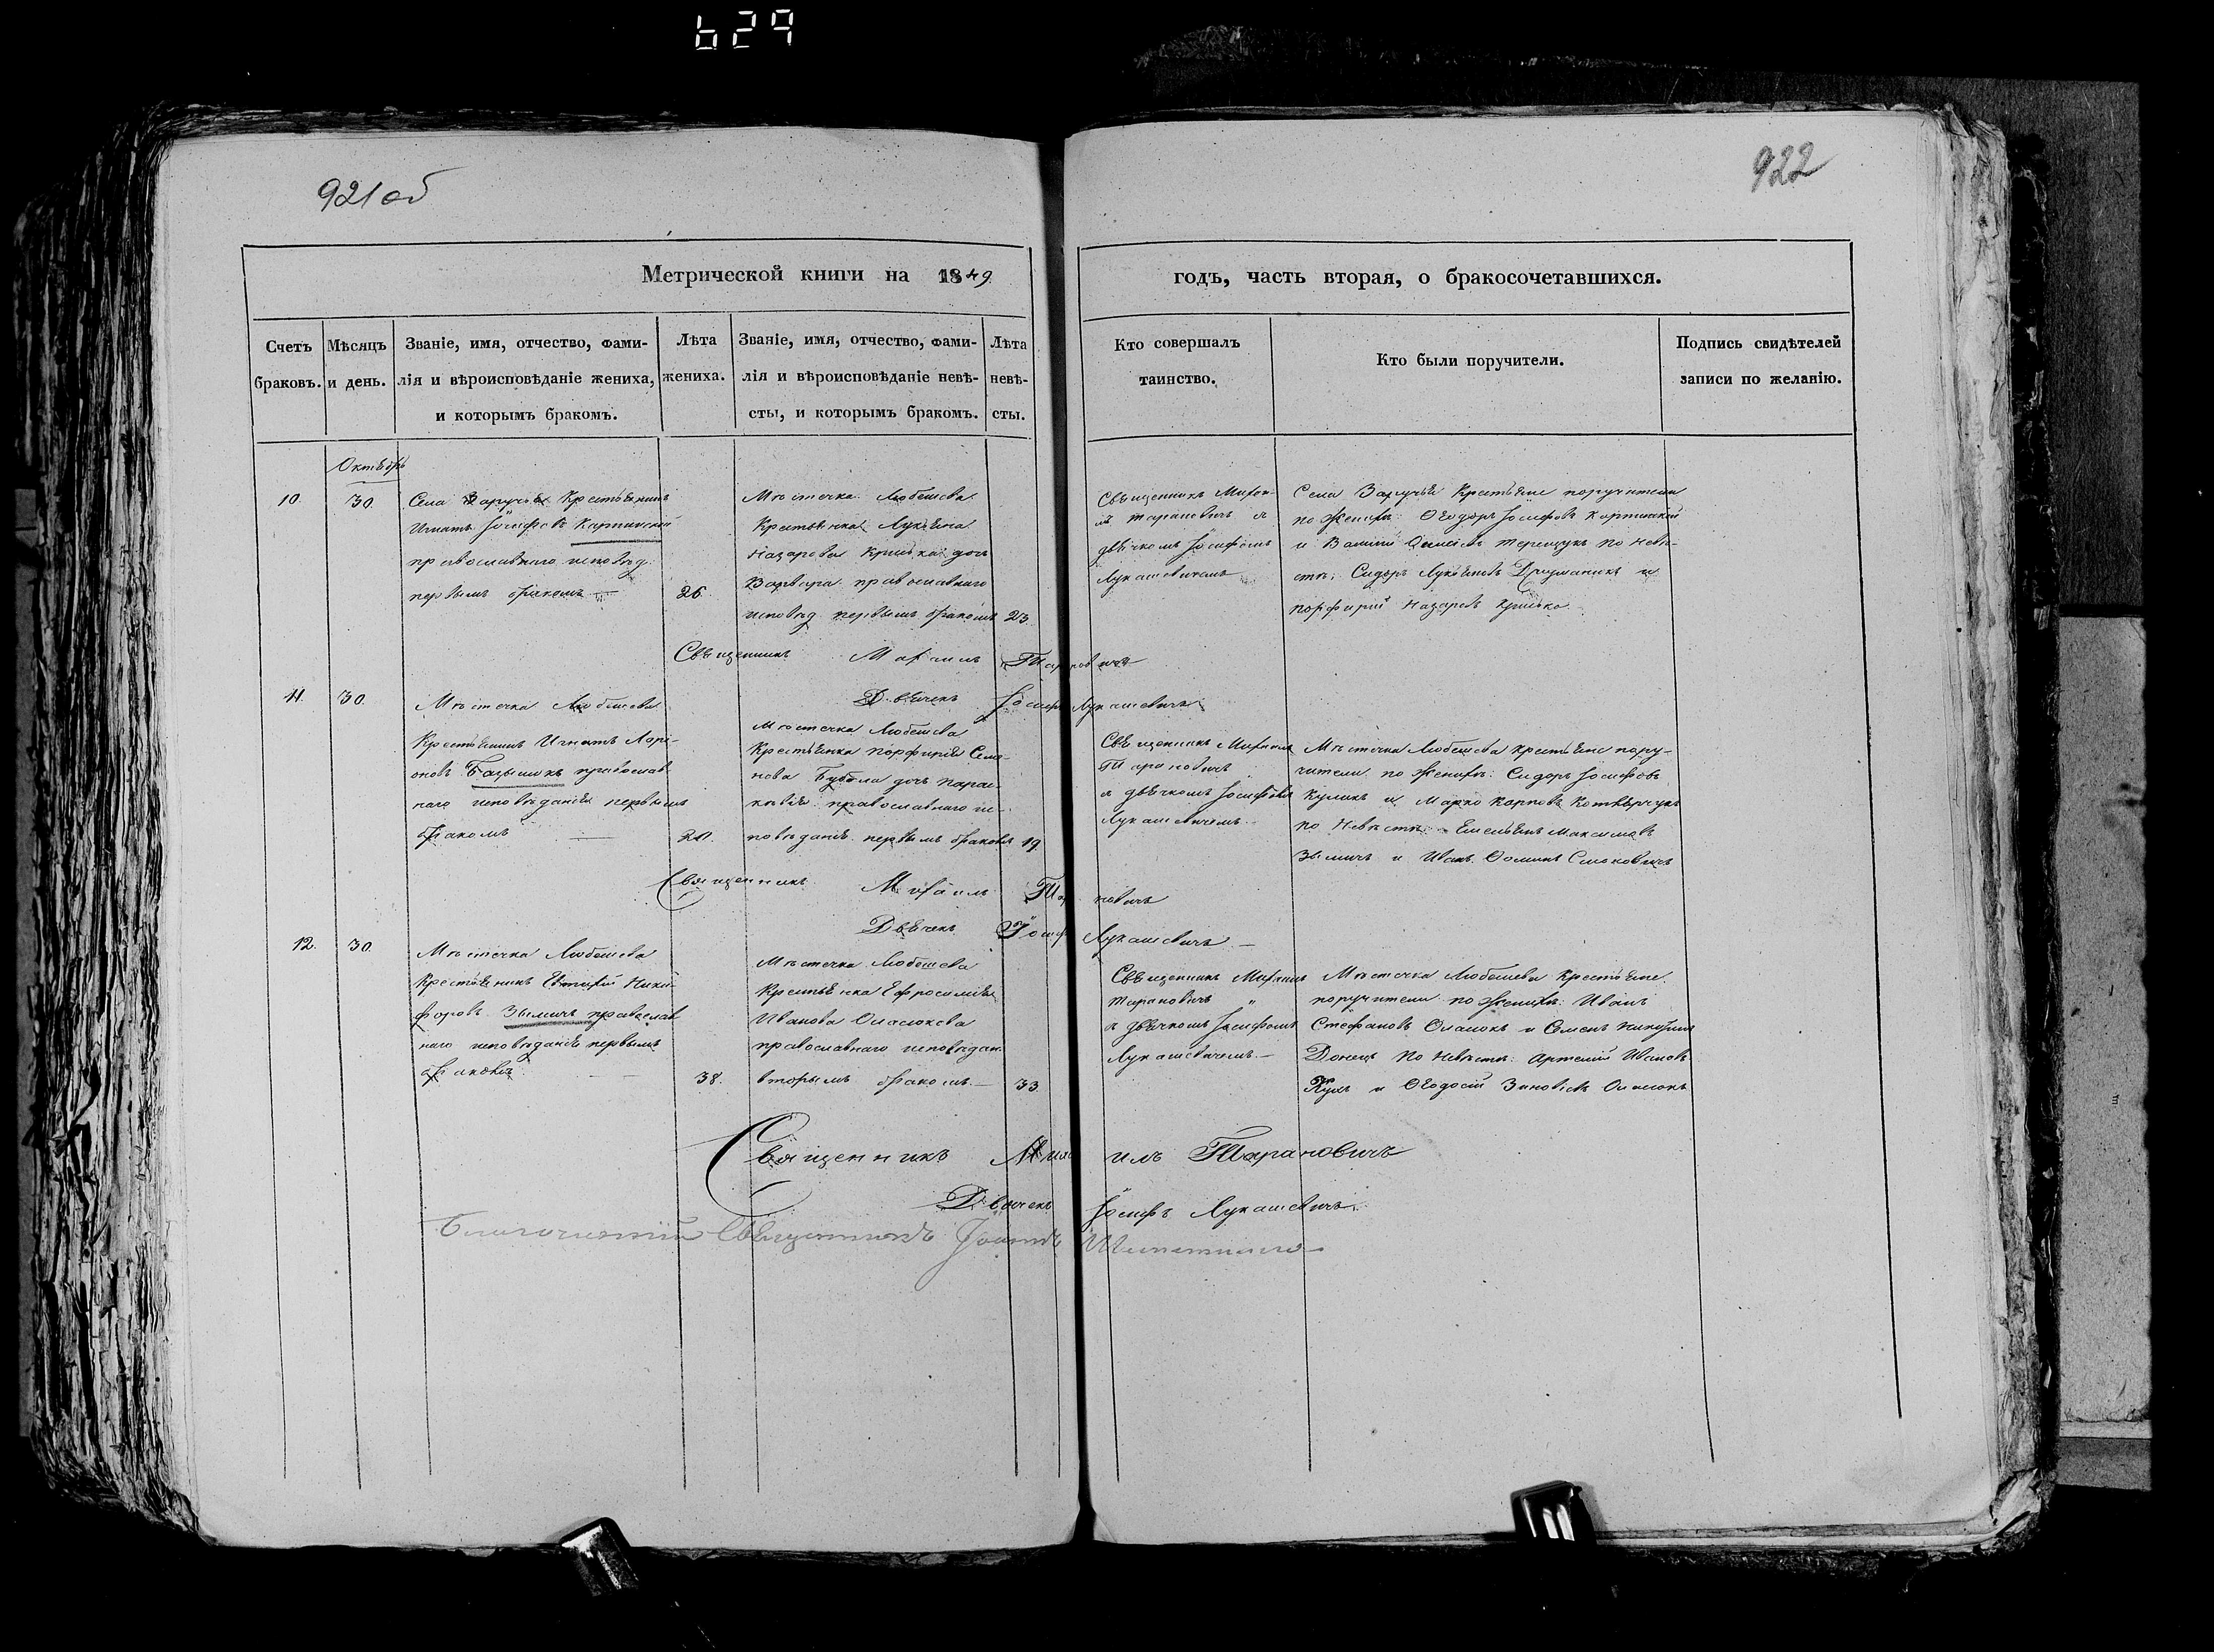 629
921об
922
Метрической книги на 1849
годъ, часть вторая, о бракосочетавшихся.
Счетъ браковъ.
Мѣсяцъ и день.
Званіе, имя, отчество, фами-
лія и вѣроисповѣданіе жениха,
и которымъ бракомъ.
Лѣта жениха.
Званіе, имя, отчество, фами-
лія и вѣроисповѣданіе невѣ-
сты, и которымъ бракомъ.
Лѣта невѣ-
сты.
Кто совершалъ
таинство.
Кто были поручители.
Подпись свидѣтелей
записи по желанію.
Октябрь
10.
30.
Села Заручья Крестьянинъ
Игнатъ Іосифовъ
православнаго исповѣд.
первымъ бракомъ
26.
Мѣстечка Любешева
Крестьянка Лукьяна
Назарова дочь
Варвара православнаго
исповѣд первымъ бракомъ
23.
Священникъ Михаи-
лъ Тарановичъ съ
дьячкомъ Іосифомъ
Лукашевичемъ
Села Заручья Крестьяне поручители
по Женихѣ: Ѳеодоръ Іосифовъ
и Терещукъ по Невѣ-
стѣ: Сидоръ Лукьяновъ и
порфирій Назаровъ
Священникъ Михаилъ Тарановичъ
Дьячекъ Іосифъ Лукашевичъ
11.
30.
Мѣстечка Любешева
Крестьянинъ Игнатъ Лари-
оновъ православ-
наго исповѣданія первымъ
бракомъ
20.
Мѣстечка Любешева
Крестьянка Порфирія Семе-
нова дочь Парас-
кевія православнаго ис-
повѣданія первымъ бракомъ
19.
Священникъ Михаилъ
Тарановичъ
съ дьячкомъ Іосифомъ
Лукашевичемъ
Мѣстечка Любешева Крестьяне пору-
чители по Женихѣ: Сидоръ Іосифовъ
Куликъ и Марко Карповъ
по Невѣстѣ: Емельянъ Максимовъ
Зымичъ и Иванъ Ѳоминъ
Священникъ Михаилъ Тарановичъ
Дьячекъ Іосифъ Лукашевичъ
12.
30.
Мѣстечка Любешева
Крестьянинъ Евтихій Ники-
форовъ Зымичъ православ
наго исповѣданія первымъ
бракомъ
38.
Мѣстечка Любешева
Крестьянка Ефросимія
Иванова
православнаго исповѣдан.
вторымъ бракомъ
33.
Священникъ Михаилъ
Тарановичъ
съ дьячкомъ Іосифомъ
Лукашевичемъ
Мѣстечка Любешева Крестьяне
поручители по Женихѣ: Иванъ
Стефановъ и Семенъ
Донецъ по Невѣстѣ: Артемій Ивановъ
и Ѳеодосій
Священникъ Михаилъ Тарановичъ
Дьячекъ Іосифъ Лукашевичъ
Благочинный Священникъ Іоаннъ